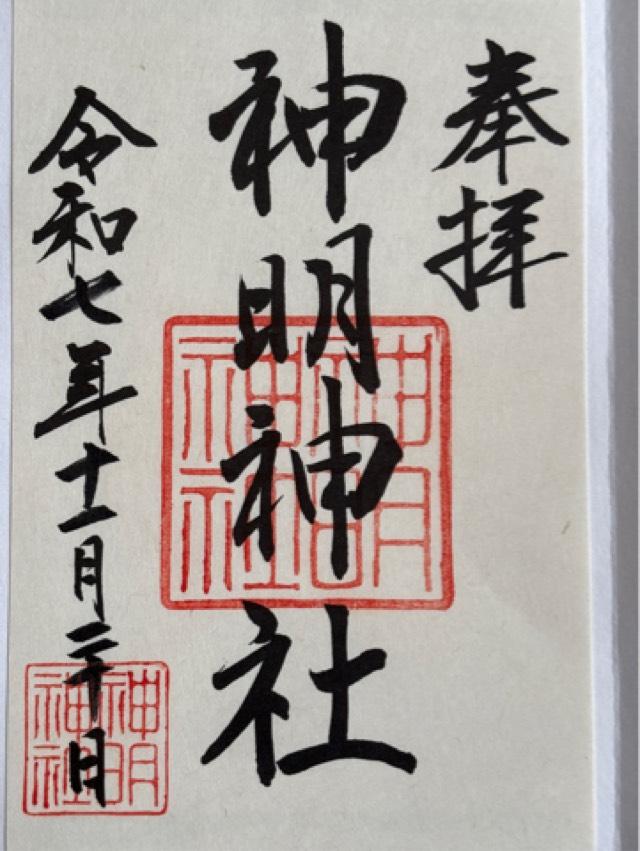 奉拝
神明神社
令和七年十一月二十日
神明
神社
神明
神社